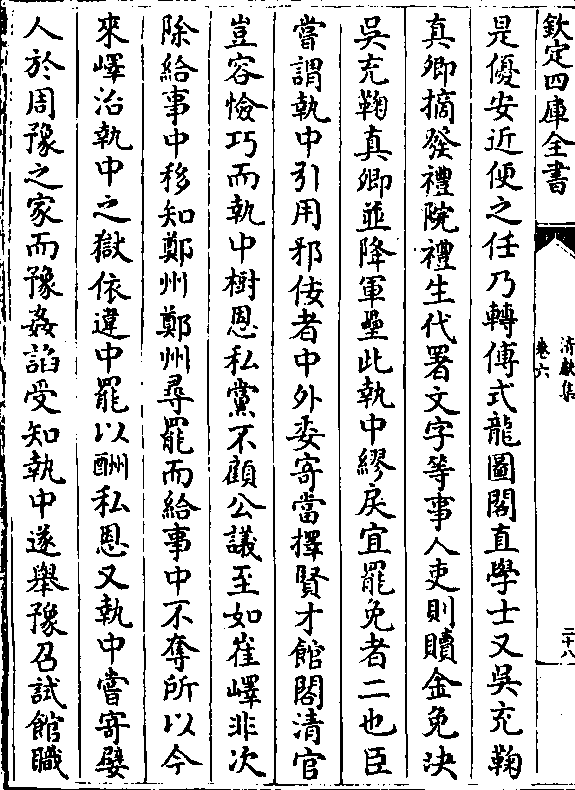 欽定四庫全書
清獻集
卷六
二十八
是優安近便之任乃轉傅式龍圖閣直學士又吳充鞠
真卿摘發禮院禮生代署文字等事人吏則贖金免决
吳充鞠真卿並降軍壘此執中繆戾宜罷免者二也臣
嘗謂執中引用邪佞者中外委寄當擇賢才館閣清官
豈容憸巧而執中樹恩私黨不顧公議至如崔嶧非次
除給事中移知鄭州鄭州尋罷而給事中不奪所以今
來嶧治執中之獄依違中罷以酬私恩又執中嘗寄嬖
人於周豫之家而豫姦諂受知執中遂舉豫召試館職